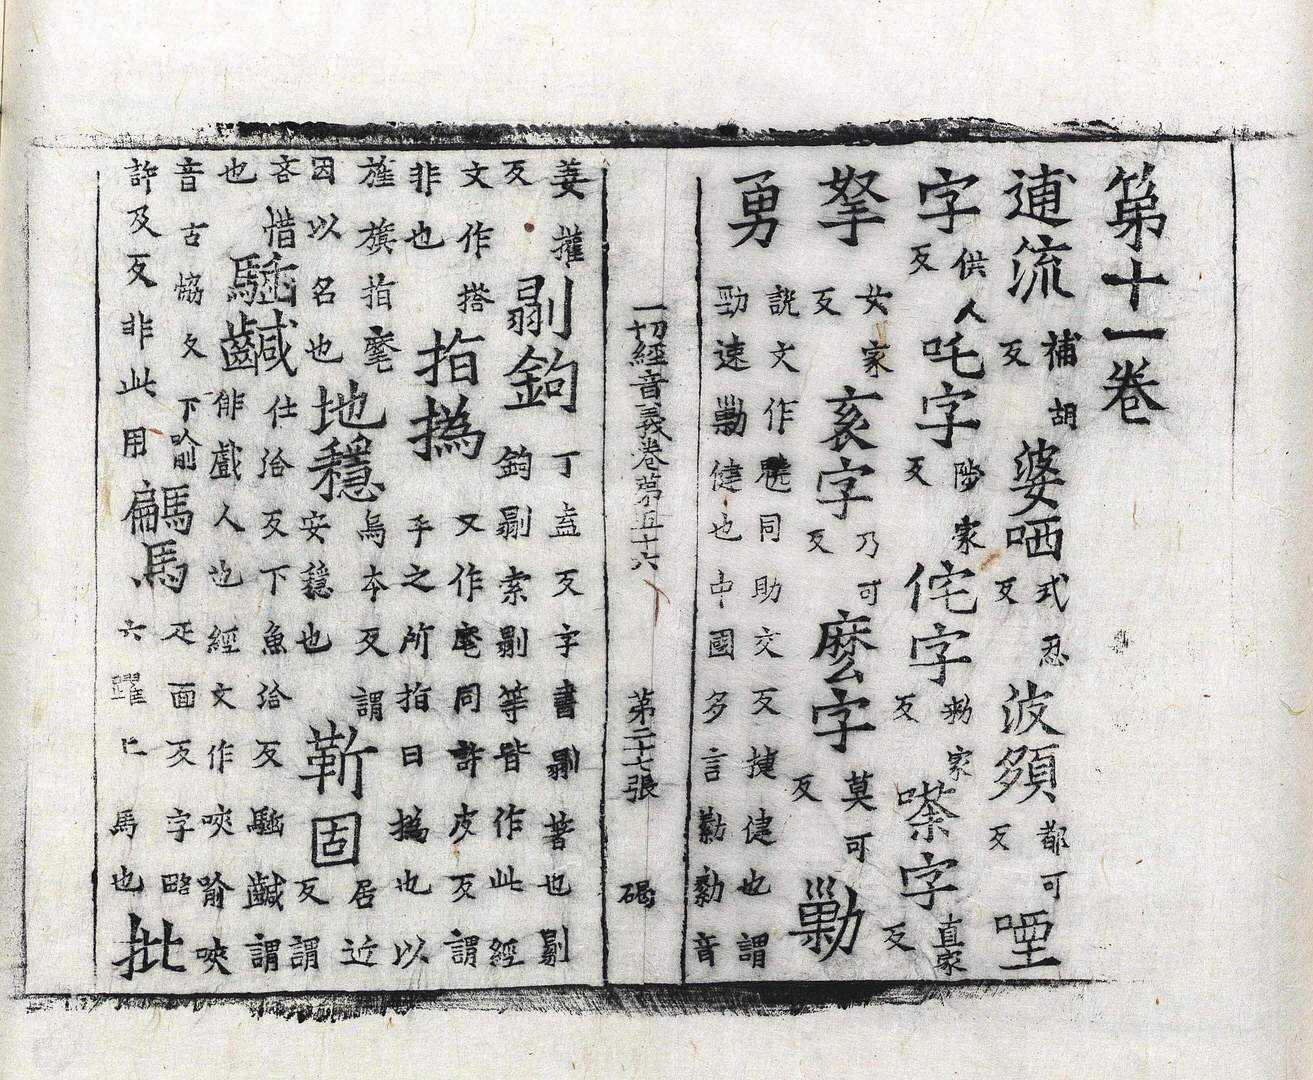 第十一卷
逋流補胡反婆哂式忍反波頞都可反㖶
字供人反吒字陟家反侘字勑家反嗏字直家反
拏女家反亥字乃可反麼字莫可反勦
勇說文作魑同助交反捷健也謂
勁速勦健也中國多言勦勦音
一切經音義卷第五十六 第二十七張 碣
姜權反剔鉤丁盍反字書剔著也剔
鉤剔索剔等皆作此經
文作搭非也指撝又作麾同許皮反謂
手之所指曰撝也以
旌旗指麾因以名也地穩烏本反謂
安穩也靳固居近反謂
吝惜也鹹仕洽反下魚洽反鹹謂
俳戲人也經文作唊喻唊
音古協反下喻許及反非此用騙馬疋面反字略
六躍上馬也批